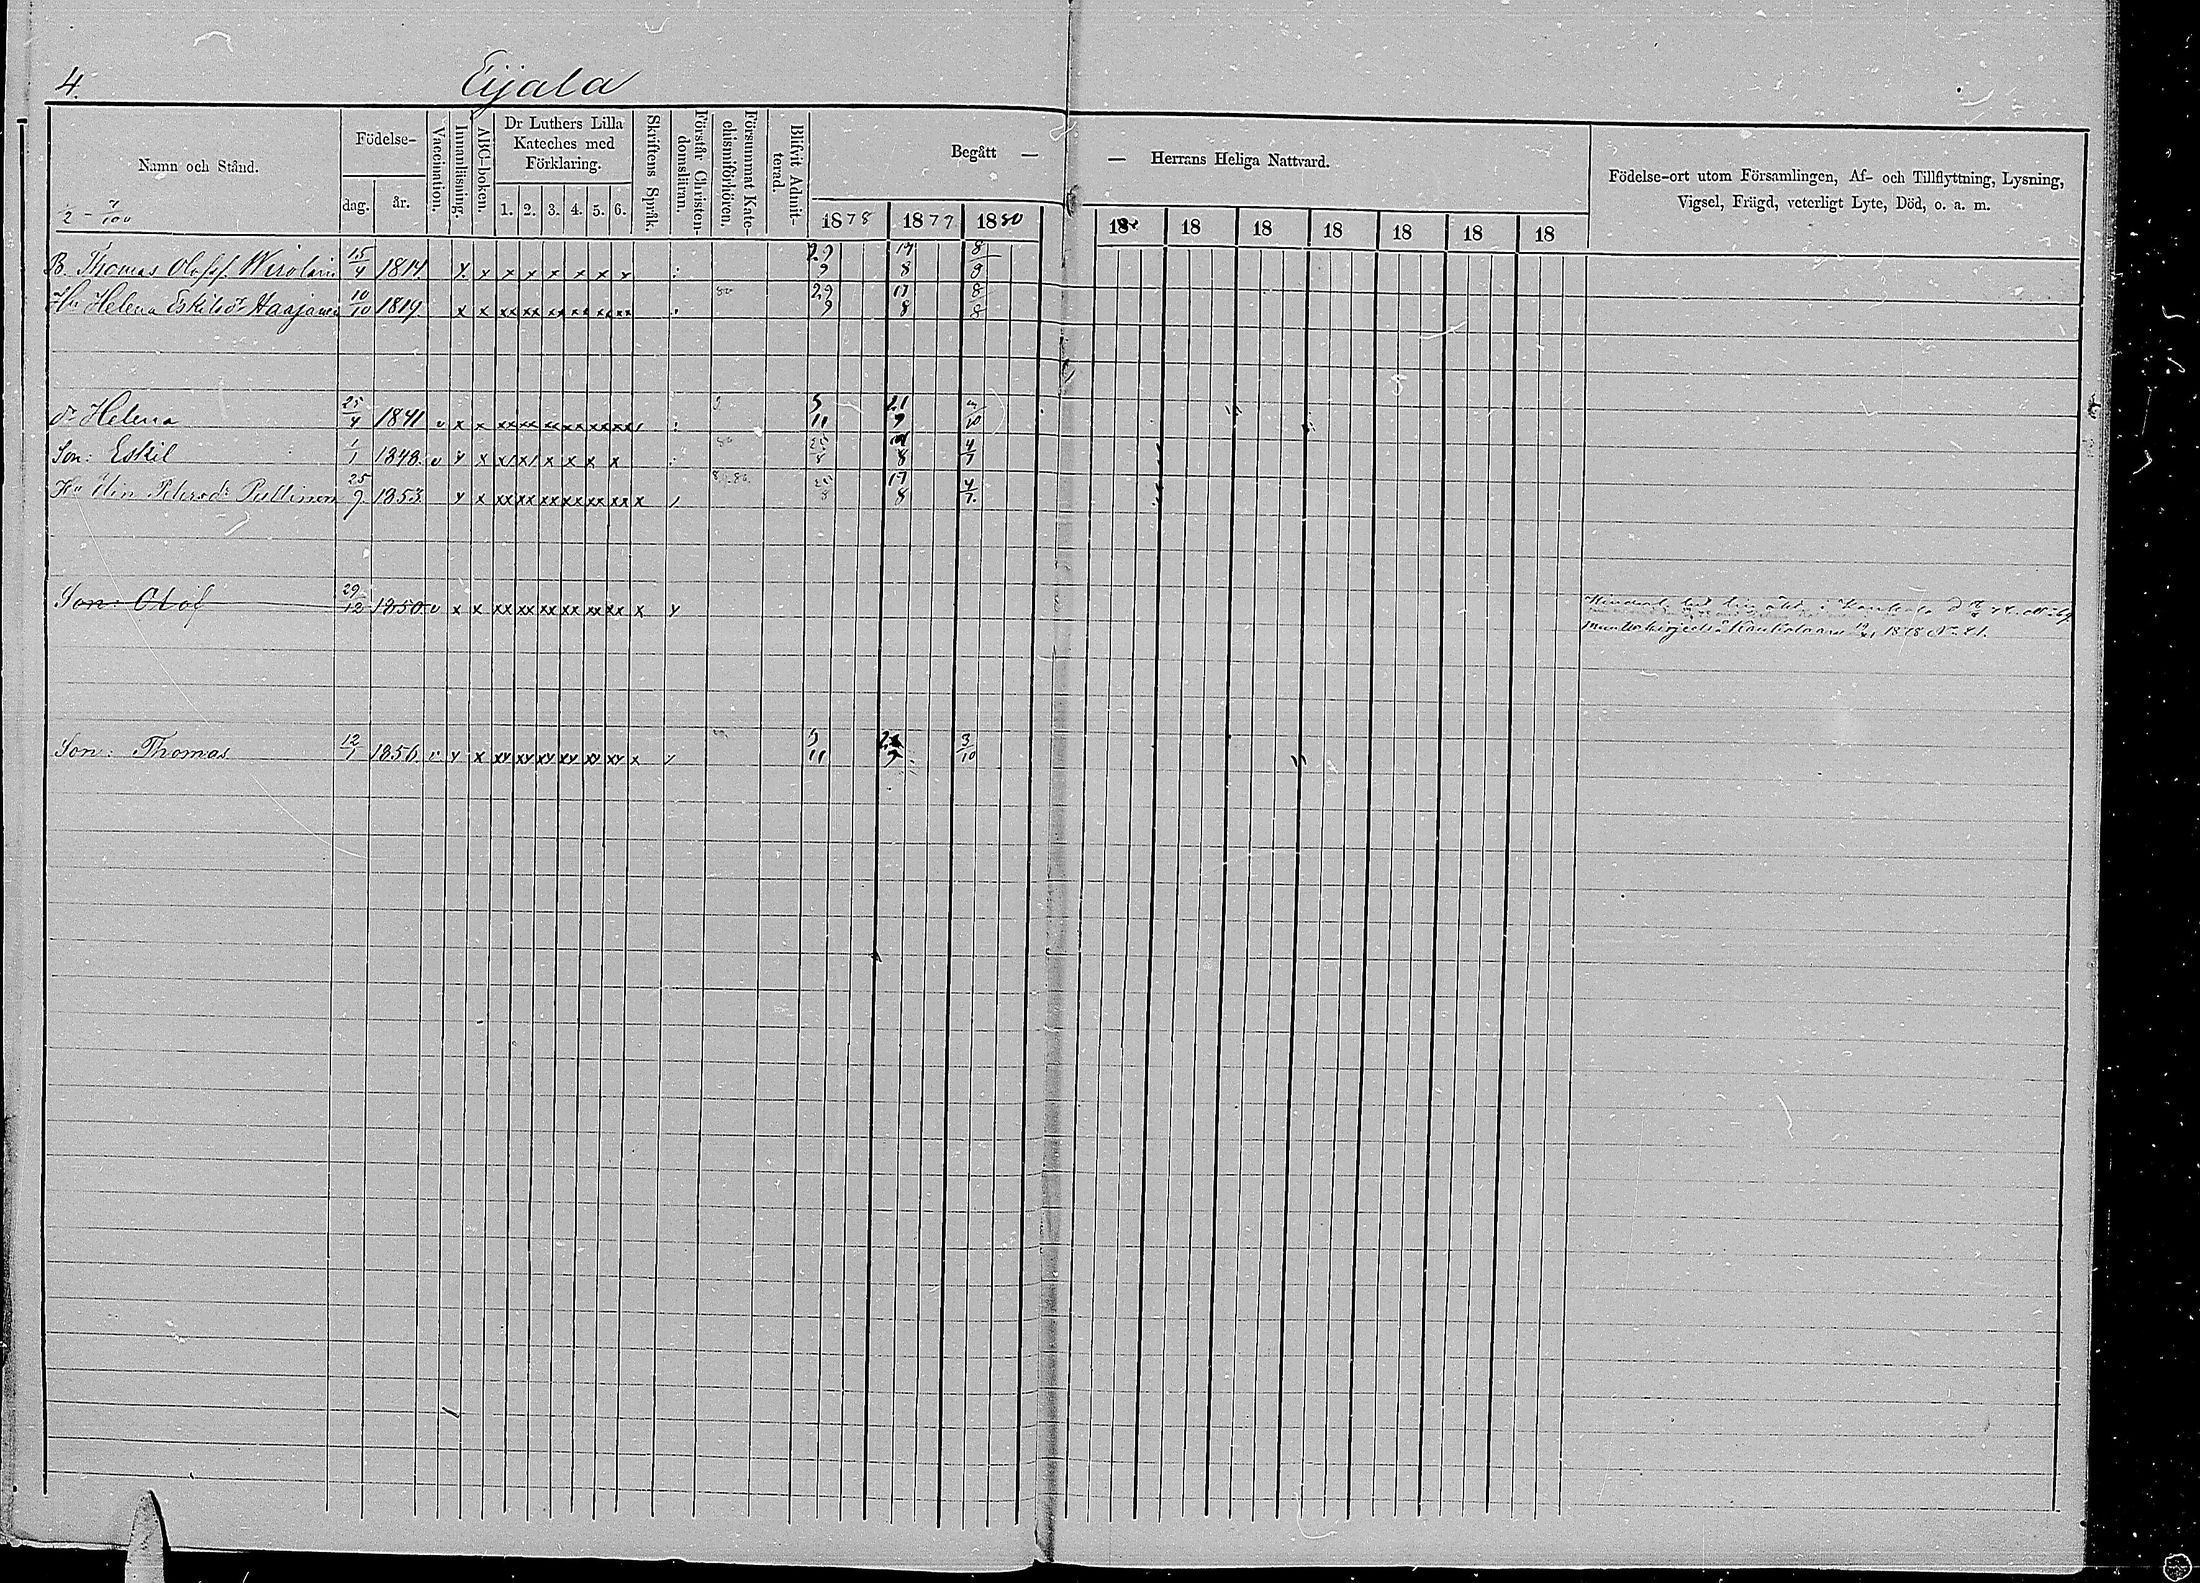 4.
Eijala
Namn och Stånd.
Födelse-
dag.
år.
Vaccination.
Innanläsning.
ABC-boken.
Dr Luthers Lilla
Kateches med
Förklaring.
1. 2. 3. 4. 5. 6.
Skriftens Språk.
Förstår Christen-
domsläran.
Försummat Kate-
chismiförhören.
Blifvit Admit-
terad.
Begått —
— Herrans Heliga Nattvard.
1878 1879 1880
18 18 18 18 18 18 18
Födelse-ort utom Församlingen, Af- och Tillflyttning, Lysning,
Vigsel, Frägd, veterligt Lyte, Död, o. a. m.
B. Thomas Olofss. Wirolain 15/4 1814 x x x x x x x 29/9 17/8 8/8
Hu Helena Eskilsdr Haajanen 10/10 1819 x x xx xx xx xx xx xx 29/9 17/8 8/8
dr Helena 25/4 1841 v x x xx xx xx xx xx xx 3/11 21/9
Son: Eskil 1/1 1848 v x x x x x x x x 25/8 17/8 4/7
Hu Elin Petersdr Pullinen 25/9 1853 x x xx xx xx xx xx xx x 25/8 17/8 4/7
Son: Olof 29/12 1850 v x x xx xx xx xx xx xx x
Kaukola
1878 No 21.
Son: Thomas 12/1 1856 v x x xx xx xx xx xx xx x 3/11 3/10